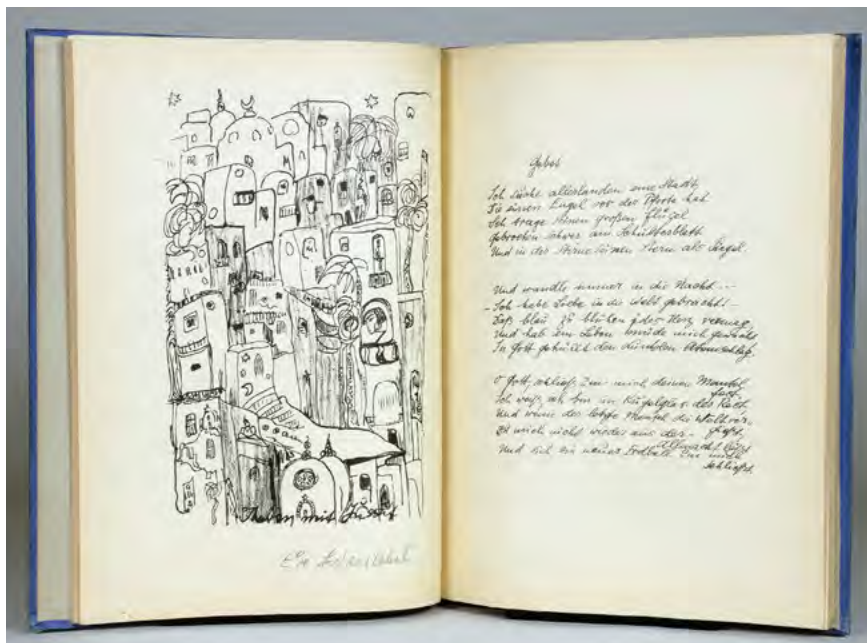 Theben mit Jussuf
Gebet
Ich suche allerlanden eine Stadt,
Die einen Engel vor der Pforte hat
Ich trage seinen großen Flügel
Gebrochen schwer am Schulterblatt
Und in der Stirne seinen Stern als Siegel.
Und wandle immer in die Nacht...
- Ich habe Liebe in die Welt gebracht! -
Daß blau zu blühen jedes Herz vermag
Und hab ein Leben müde mich gewacht
In Gott gehüllt den dunklen Atemschlag.
O Gott, schließ um mich deinen Mantel
fest.
Ich weiß, ich bin im Kugelglas der Rest,
Und wenn der letzte Mensch die Welt ver-
gießt,
Du mich nicht wieder aus der
Allmacht läßt
Und sich ein neuer Erdball um mich
schließt.